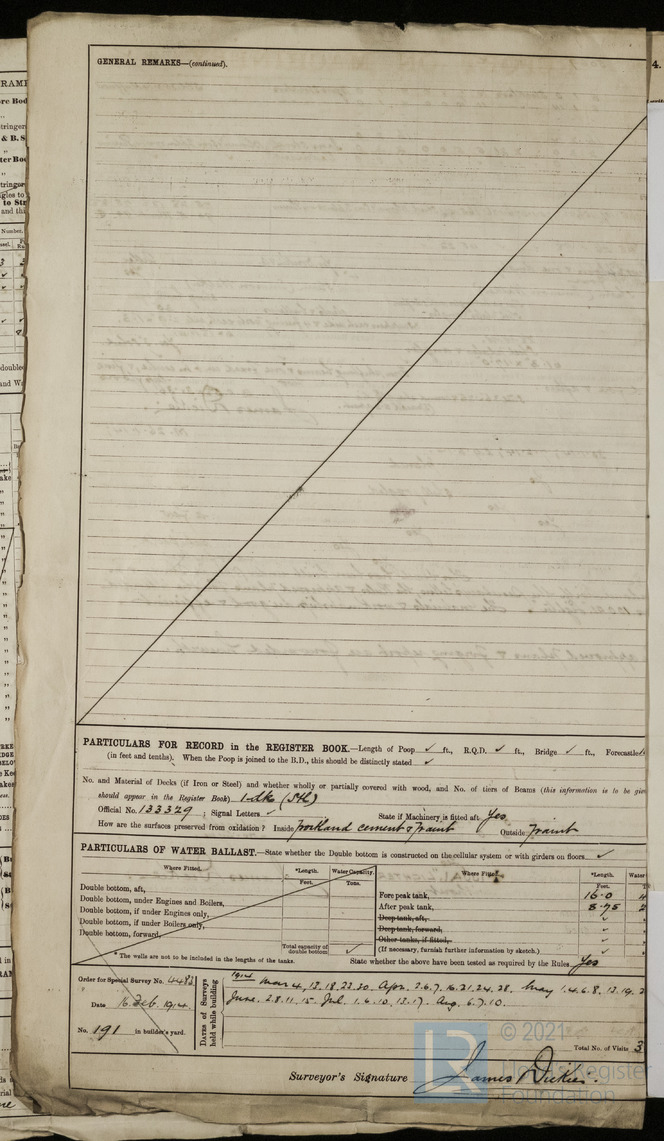 GENERAL REMARKS—(continued).
PARTICULARS FOR RECORD in the REGISTER BOOK.—Length of Poop ✓ ft., R.Q.D. ✓ ft., Bridge ✓ ft., Forecastle
(in feet and tenths). When the Poop is joined to the B.D., this should be distinctly stated ✓
No. and Material of Decks (if Iron or Steel) and whether wholly or partially covered with wood, and No. of tiers of Beams (this information is to be
should appear in the Register Book) 1 dk (Stl)
Official No. 133329 ; Signal Letters ✓ State if Machinery is fitted aft Yes
How are the surfaces preserved from oxidation? Inside Portland cement & paint Outside Paint
PARTICULARS OF WATER BALLAST.—State whether the Double bottom is constructed on the cellular system or with girders on floors ✓
Where Fitted. *Length. Water Capacity. Where Fitted. *Length. Water
Feet. Tons. Feet.
Double bottom, aft,
Double bottom, under Engines and Boilers,
Double bottom, if under Engines only,
Double bottom, if under Boilers only,
Double bottom, forward,
Total capacity of double bottom ✓
Fore peak tank, 16.0
After peak tank, 8.75
Deep tank, aft, ✓
Deep tank, forward, ✓
Other tanks, if fitted, ✓
(If necessary, furnish further information by sketch.) ✓
* The wells are not to be included in the lengths of the tanks.
State whether the above have been tested as required by the Rules Yes
Order for Special Survey No. 4483
Date 16 Feb. 1914
No. 191 in builder's yard.
DATES of Surveys held while building
1914 Mar 4, 12. 18. 23. 30. Apr. 2. 6. 7. 16. 21. 24. 28. May 1. 4. 6. 8. 12. 19.
June. 2. 8. 11. 15. Jul. 1. 6. 10. 13. 17. Aug. 6. 7. 10.
Total No. of Visits 3
Surveyor's Signature James Dickie.
© 2021
Lloyd's Register
Foundation